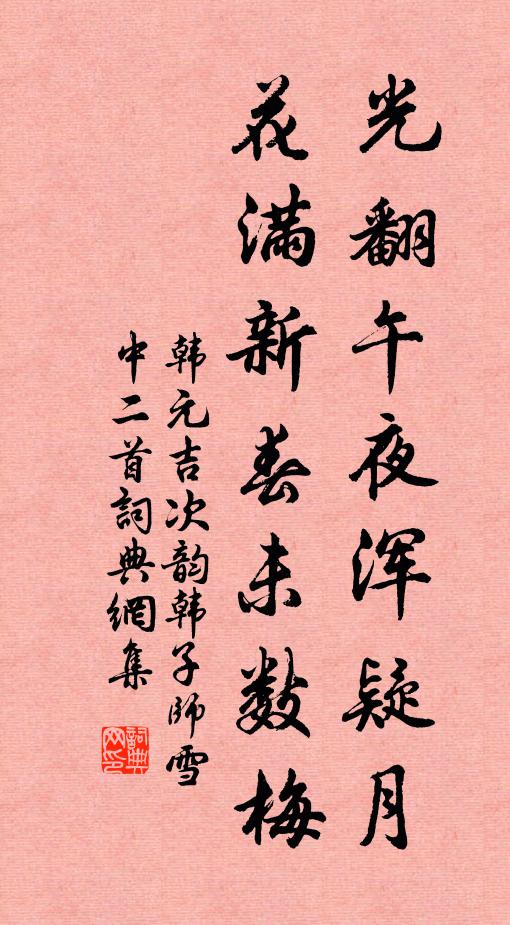 光翻午夜浑疑月
花满新春未数梅
韩元吉次韵韩子師雪
中二首詞典網集
詞典网印